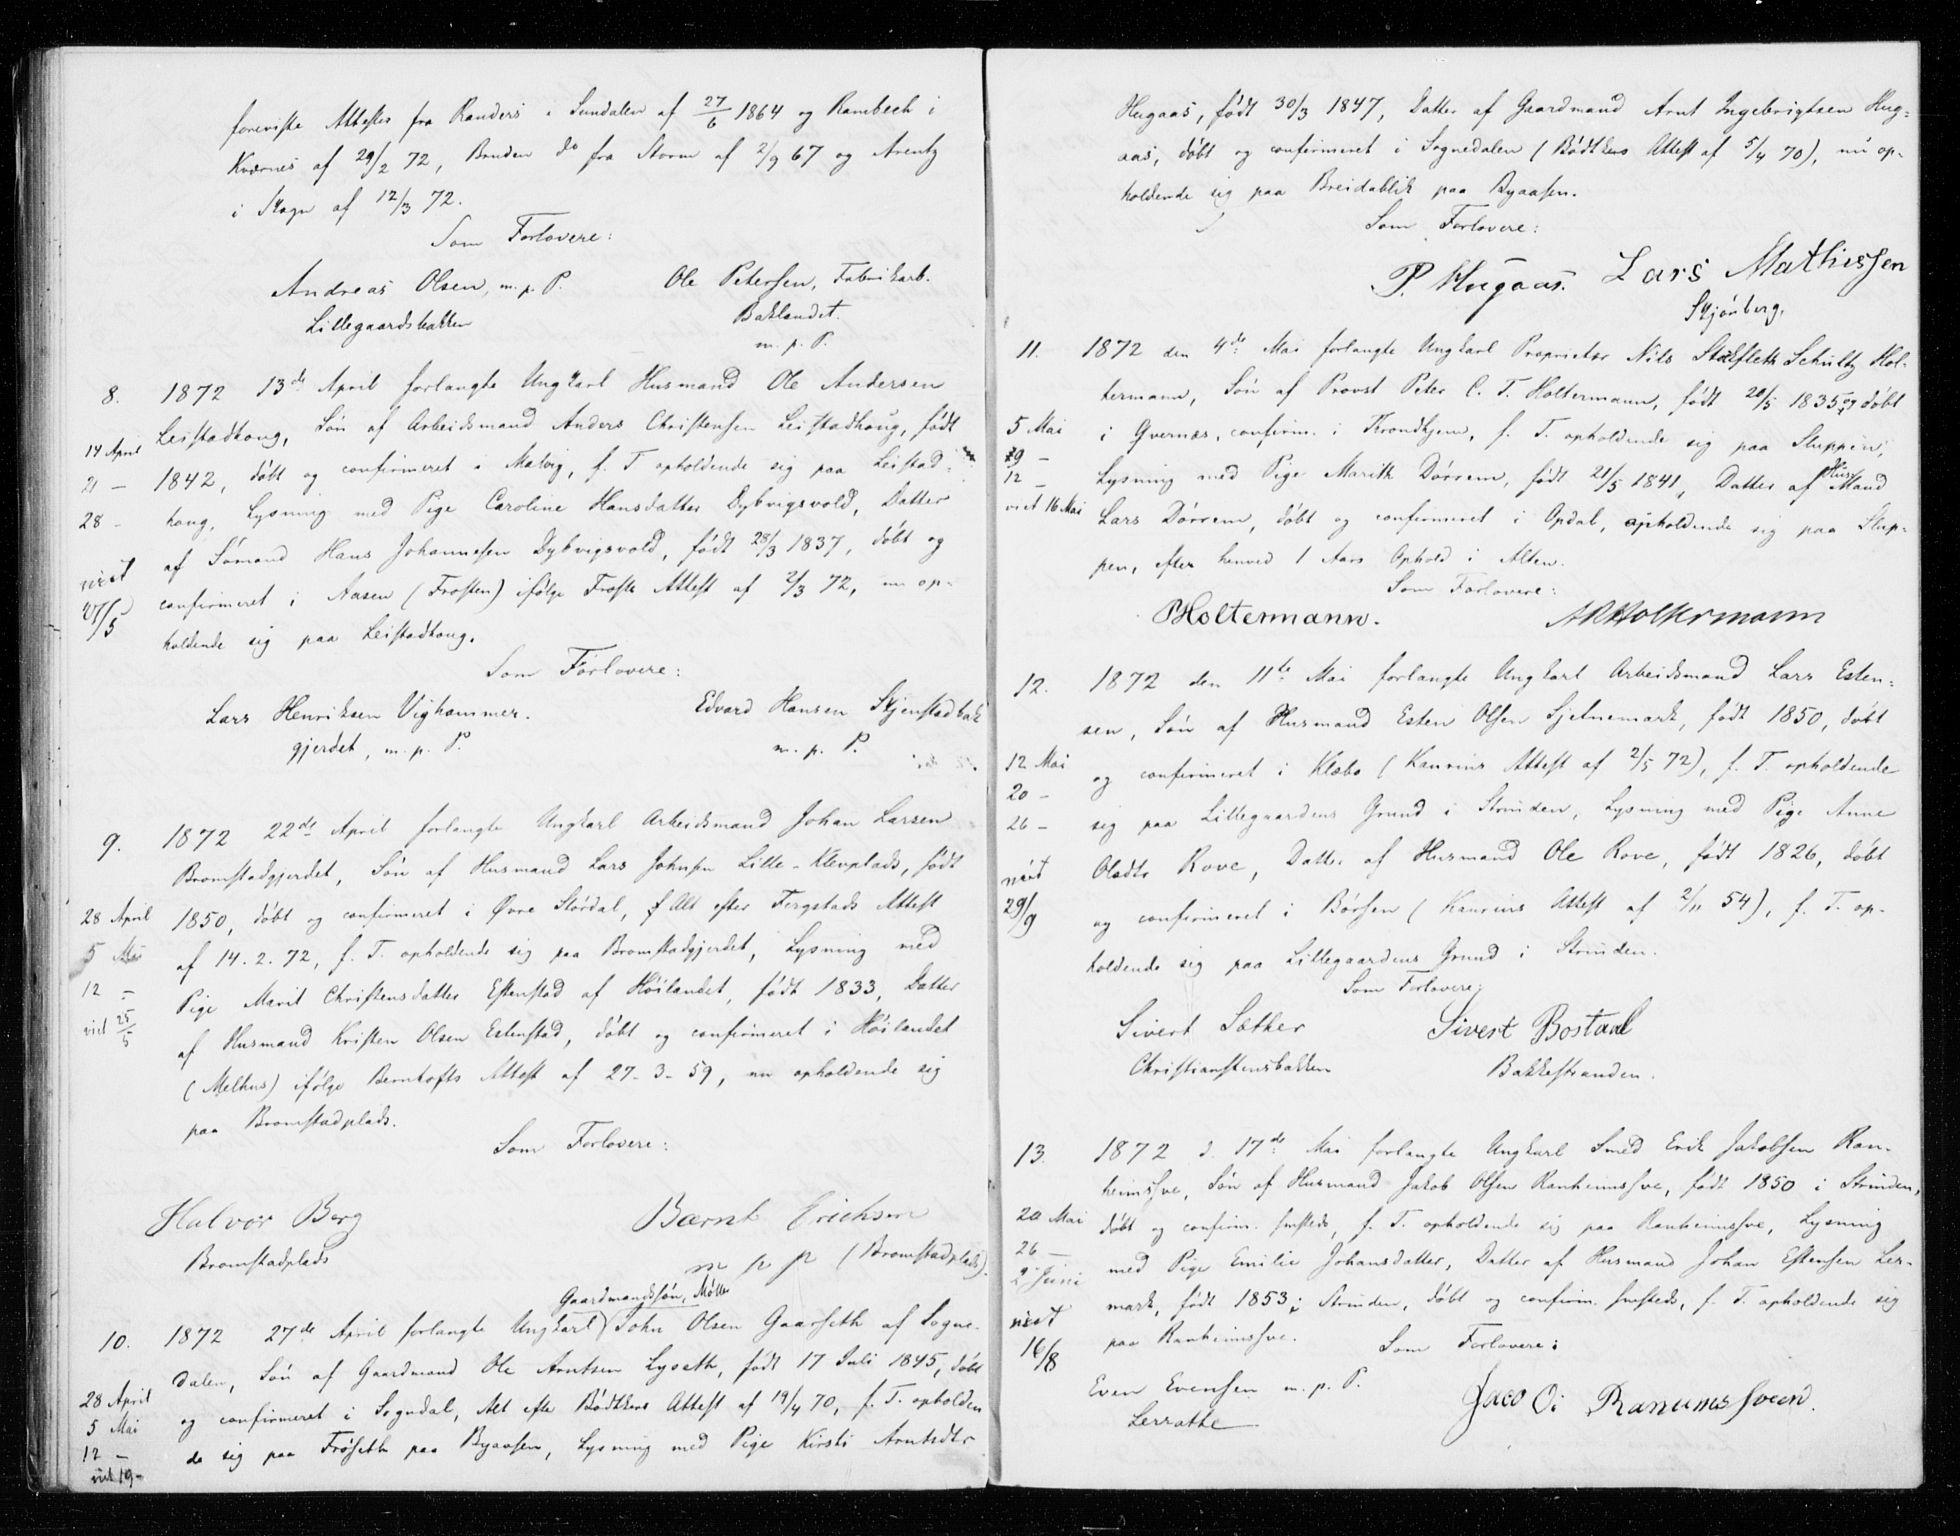 foreviste Attester fra Randers i Sundalen af 27/6 1864 og Rambech i
Kværnes af 29/2 72, Bruden do fra Storm af 2/9 67 og Arentz
i Skogn af 12/3 72.
Som Forlovere:
Andreas Olsen, m. p. P.
Lillegaardsbakken
Ole Petersen, Fabrikarb.
Baklandet.
m. p. P.
8.
1872 13de April forlangte Ungkarl Husmand Ole Andersen
Leistadhoug, Søn af Arbeidsmand Anders Christensen Leistadhoug, født
1842, døbt og confirmeret i Malvig, f. T opholdende sig paa Leistad-
houg, Lysning med Pige Caroline Hansdatter Dybvigsvold, Datter
af Sømand Hans Johannesen Dybvigsvold, født 28/3 1837, døbt og
confirmeret i Aasen (Frosten) ifølge Frosts Attest af 2/3 72, nu op-
holdende sig paa Leistadhoug.
14 April
21 –
28 –
viet
27/5
Som Forlovere:
Lars Henriksen Vighammer.
gjerdet, m. p. P.
Edvard Hansen Skjenstadbak
m. p. P.
9.
1872 22de April forlangte Ungkarl Arbeidsmand Johan Larsen
Bromstadgjerdet, Søn af Husmand Lars Johnsen Lille-Klevplads, født
1850, døbt og confirmeret i Øvre Stördal, Alt efter Fergstads Attest
af 14. 2. 72, f. T. opholdende sig paa Bromstadgjerdet, Lysning med
Pige Marit Christensdatter Estenstad af Høilandet, født 1833, Datter
af Husmand Kristen Olsen Estenstad, døbt og confirmeret i Høilandet
(Melhus) ifølge Bernhofts Attest af 27-3-59, nu opholdende sig
paa Bromstadplads.
28 April
5 Mai
12 –
viet 25/5
Som Forlovere:
Halvor Berg
Bromstadplads
Bærnt Erichsen
m p p (Bromstadplads).
10.
Gaardmandssøn, Møller
1872 27de April forlangte Ungkarl John Olsen Gaarseth af Sogne-
dalen, Søn af Gaardmand Ole Arntsen Lyseth, født 17 Juli 1845, døbt
og confirmeret i Sogndal, Alt efter Bødtkers Attest af 19/4 70, f. T. opholden
de sig paa Frøseth paa Byaasen, Lysning med Pige Kirsti Arntsdtr
28 April
5 Mai
12 –
viet 19 –
Hugaas, født 30/3 1847, Datter af Gaardmand Arnt Ingebrigtsen Hug-
aas, døbt og confirmeret i Sognedalen (Bødtkers Attest af 5/4 70), nu op-
holdende sig paa Breidablik paa Byaasen.
Som Forlovere:
P. Hugaas.
Lars Mathissen
Skjønberg.
11.
1872 den 4de Mai forlangte Ungkarl Proprietær Nils Stolfleth Schultz Hol-
termann, Søn af Provst Peter C. T. Holtermann, født 20/5 1835 og døbt
i Qvernæs, confirm. i Throndhjem, f. T. opholdende sig paa Sluppen,
Lysning med Pige Marith Dørrem, født 21/5 1841, Datter af Husmand
Lars Dørrem, døbt og confirmeret i Opdal, opholdende sig paa Slup-
pen, efter henved 1 Aars Ophold i Alten.
5 Mai
9 –
12 –
viet 16 Mai
Som Forlovere:
Holtermann.
Holtermann
12.
1872 den 11te Mai forlangte Ungkarl Arbeidsmand Lars Esten-
sen, Søn af Husmand Esten Olsen Sjetnemark, født 1850, døbt
og confirmeret i Klæbo (Kaurins Attest af 2/5 72), f. T. opholdende
sig paa Lillegaardens Grund i Strinden, Lysning med Pige Anne
Olsdtr Rove, Datter af Husmand Ole Rove, født 1826, døbt
og confirmeret i Børsen (Kaurins Attest af 2/11 54), f. T. op-
holdende sig paa Lillegaardens Grund i Strinden.
12 Mai
20 –
26 –
viet
29/9
Som Forlovere:
Sivert Sæther
Christianstensbakken
Sivert Bostad
Bakkestranden.
13.
1872 d. 17de Mai forlangte Ungkarl Smed Erik Jakobsen Ran-
heimsve, Søn af Husmand Jakob Olsen Ranheimsve, født 1850 i Strinden,
døbt og confirm. smsteds, f. T. opholdende sig paa Ranheimsve, Lysning
med Pige Emilie Johansdatter, Datter af Husmand Johan Estensen Ler-
mark, født 1853 i Strinden, døbt og confirm. smsteds, f. T. opholdende sig
paa Ranheimsve.
20 Mai
26 –
2 Juni
viet
16/8
Som Forlovere:
Even Evensen m. p. P.
Lerrotte
Jaco Oi Ranumssveen.